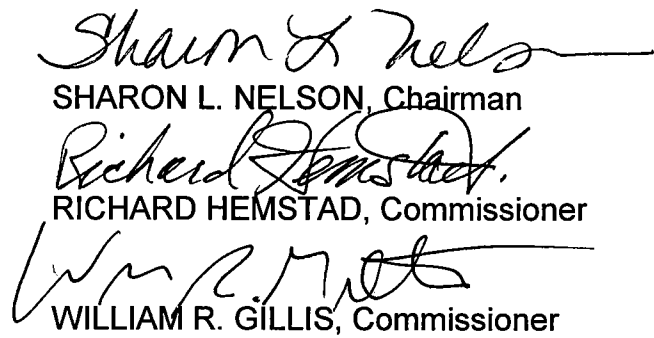 Sharon L Nelson
SHARON L. NELSON, Chairman
Richard Hemstad.
RICHARD HEMSTAD, Commissioner
Wm R. Gillis
WILLIAM R. GILLIS, Commissioner